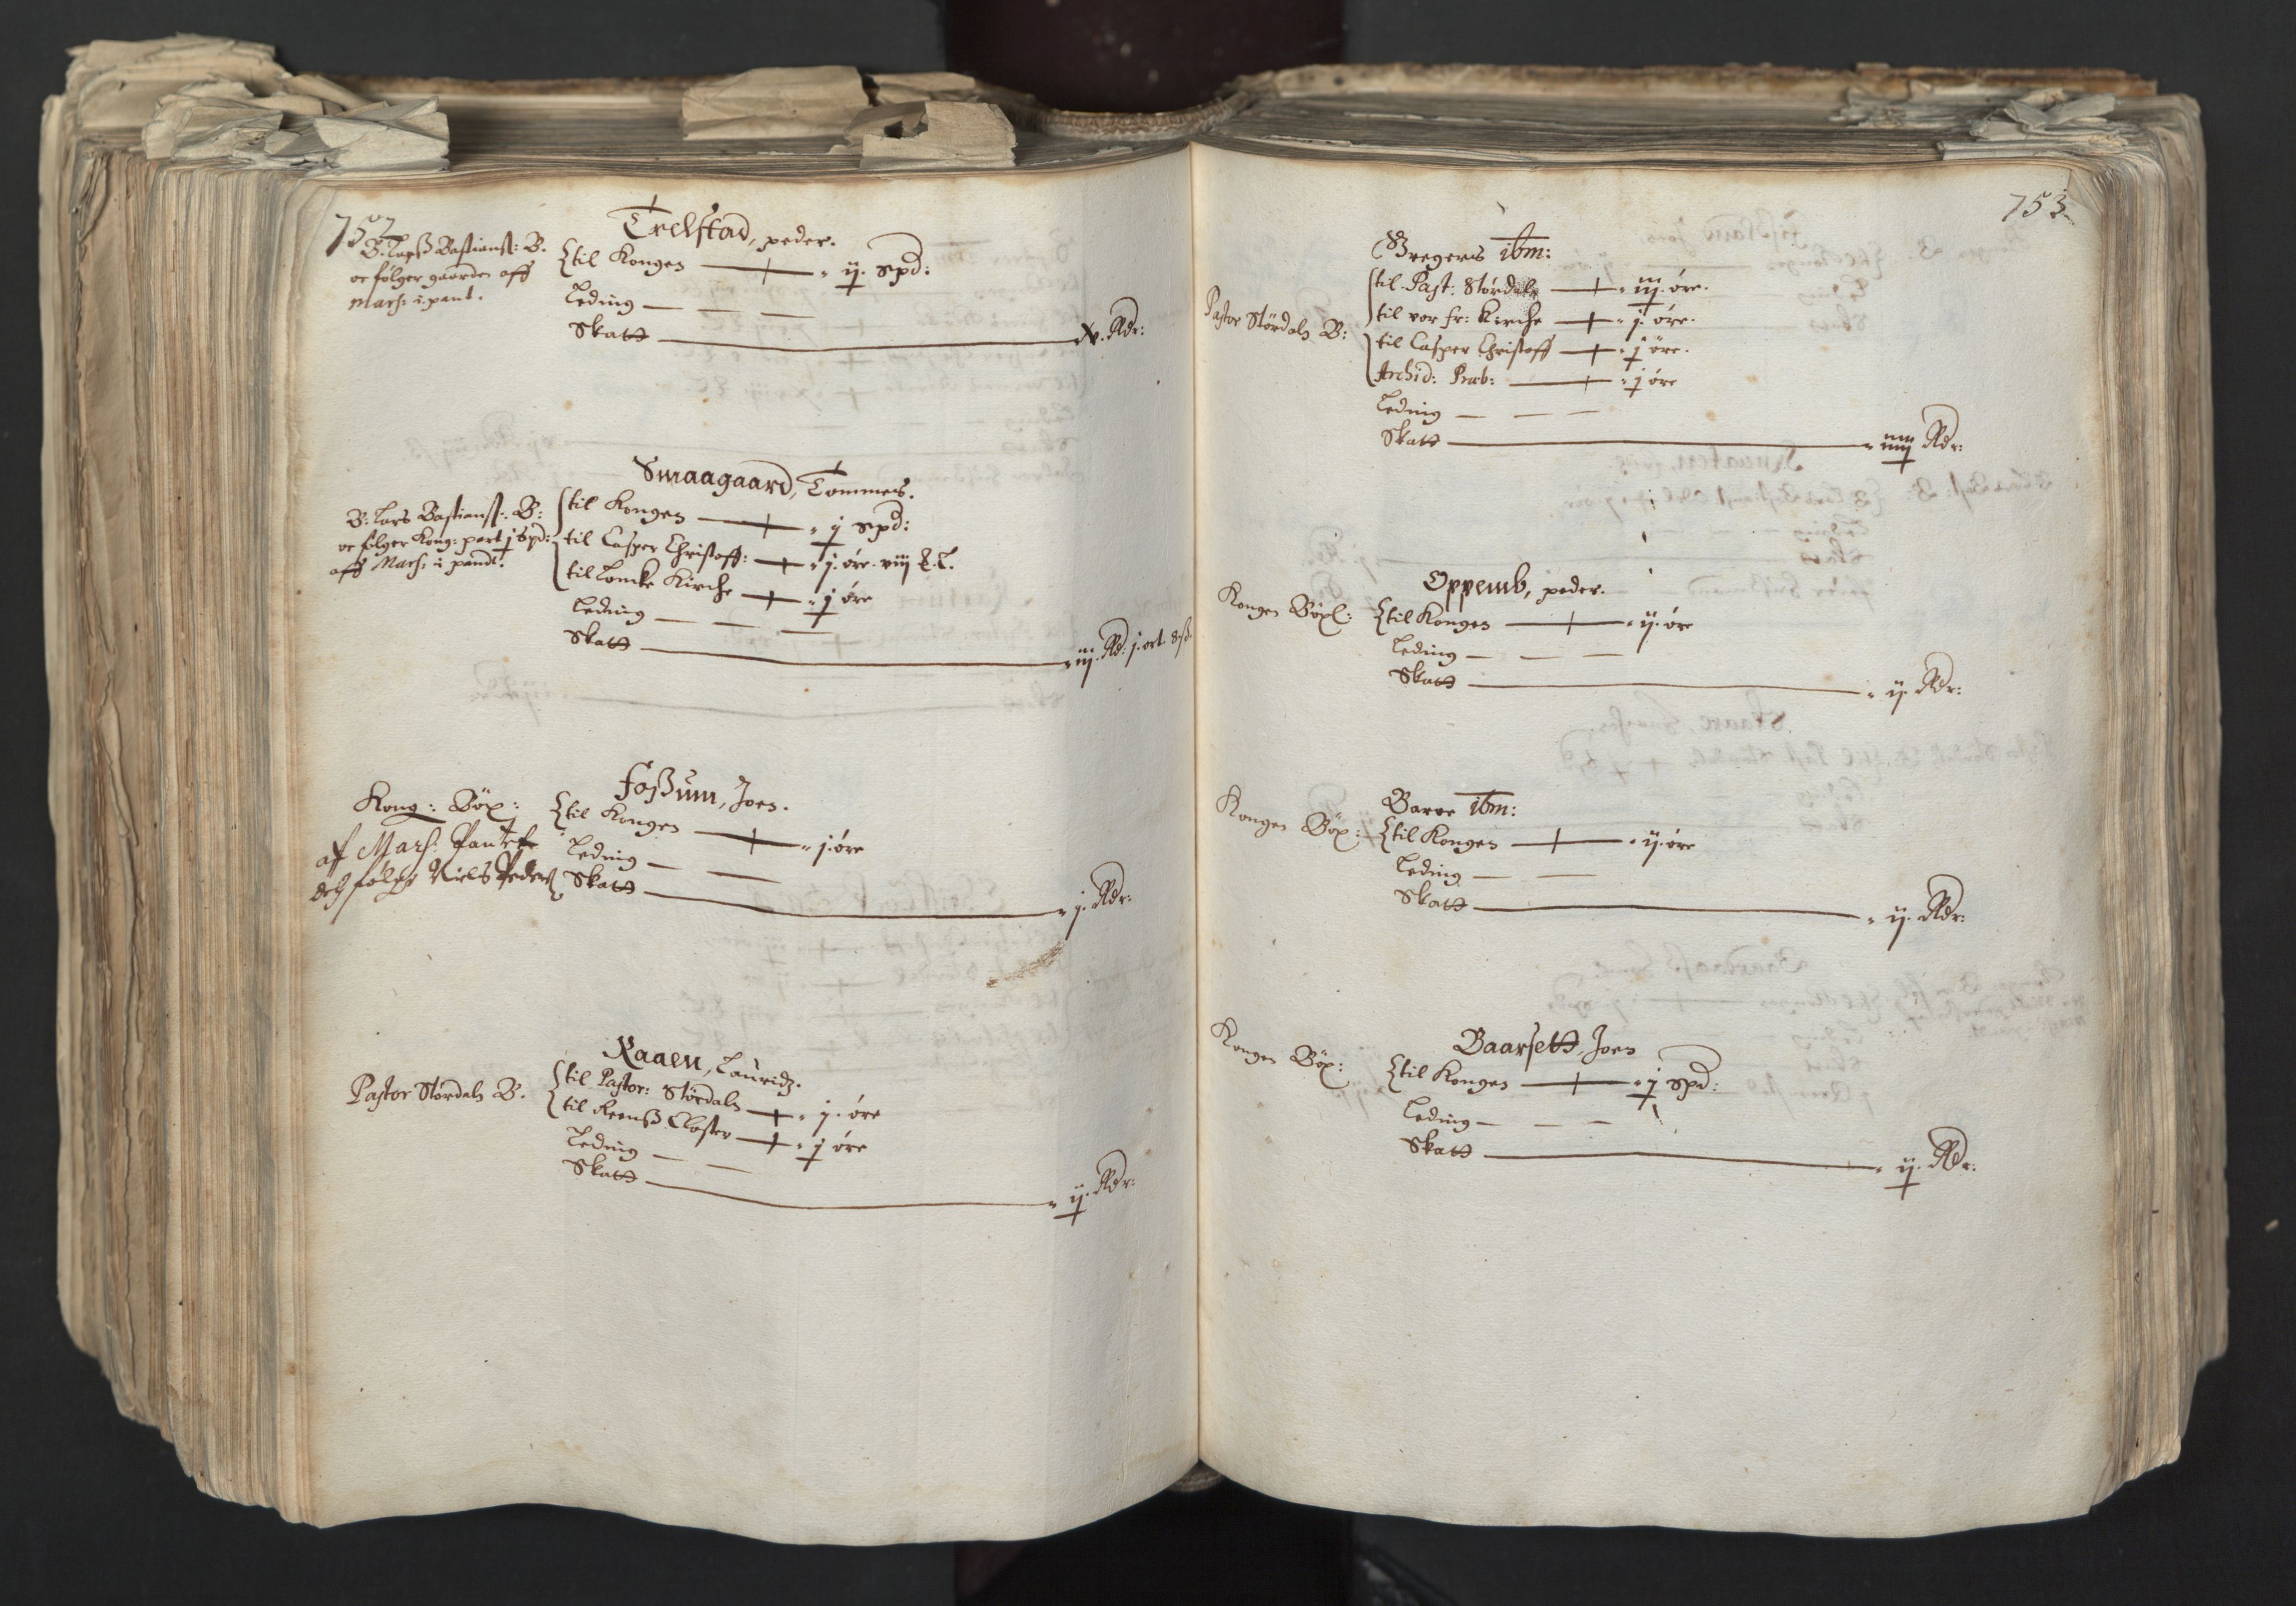 752
Trelstad, peder.
B: Larß Bastianß: B.
oc følger gaarden aff
Mars: i pant.
til Kongen — " ij. spd:
Leding — — —
Skatt — v. Rdr:
Smaagaard, Tommes.
B: Lars Bastianß: B:
oc følger Kong: part j Spd:
aff Mars: i pandt.
til Kongen — " j spd:
til Casper Christoff: — " j. øre. viij
til Loncke Kirche — " j øre
Leding — — —
Skatt — " iij. Rd. j. ort. 8 ß.
Foßum, Joen.
Kong: Böx:
af Mars:
følger Niels Peders
til Kongen — " j. øre
Leding — —
Skatt — " j. Rdr:
Raaen, Lauridz.
Pastor Størdaln B.
til Pastor: Størdaln — " j. øre
til Reenß Closter — " j øre
Leding — —
Skatt — " ij. Rdr:
753
Gregers ibm:
Pastor Størdaln B:
til Past: Størdaln — " iij. øre.
til vor fr: Kirche — " j. øre.
til Casper Christoff — " j øre.
Archid: Præb: — " j øre
Leding — — —
Skatt — " iiij Rdr:
Oppemb, peder.
Kongen Böxl:
til Kongen — " ij. øre
Leding — — —
Skatt — " ij. Rdr:
Baroe ibm:
Kongen Böx:
til Kongen — " ij. øre
Leding — —
Skatt — " ij. Rdr:
Baarsett, Joen
Kongen Böx:
til Kongen — " j spd:
Leding — — —
Skatt — " ij. Rdr: